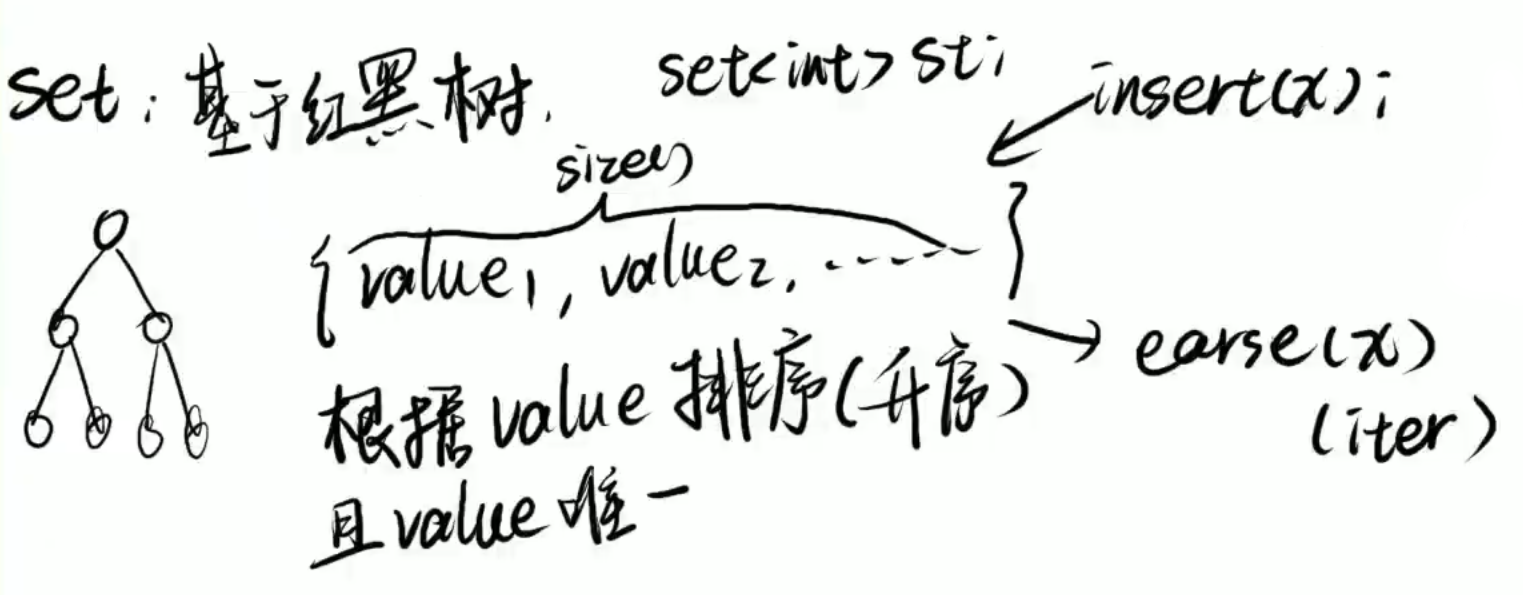 set: 基于红黑树. set<int> st; insert(x);
size()
{value1, value2, ......}
earse(x)
根据value排序(升序) (iter)
且value唯一